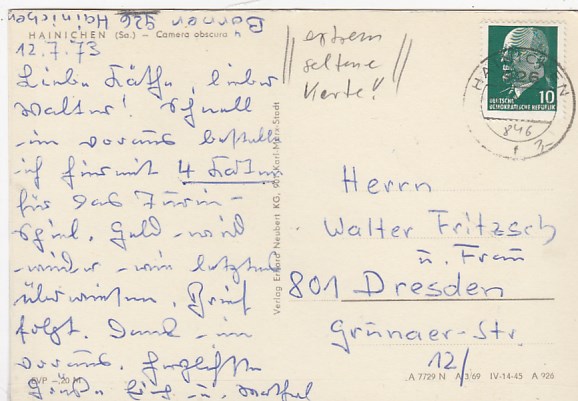 Börner 926 Hainichen
HAINICHEN (Sa.) – Camera obscura
12.7.73
Liebe Käthe, lieber
Walter! Schnell
im voraus bestelle
ich hiermit 4 Karten
für das Turin-
Spiel. Geld wird
wieder wie letztens
überwiesen. Brief
folgt. Dank im
voraus. Herzlichste
Grüße
EVP –,20 M
Verlag Erhard Neubert KG, 901 Karl-Marx-Stadt
extrem
seltene
Karte!
HAINICHEN
DEUTSCHE
DEMOKRATISCHE REPUBLIK
10
Herrn
Walter Fritzsch
u. Frau
801 Dresden
Grunaer-Str.
12/
A 7729 N A 3/69 IV-14-45 A 926